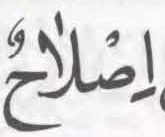 اِصْلَاحٌ